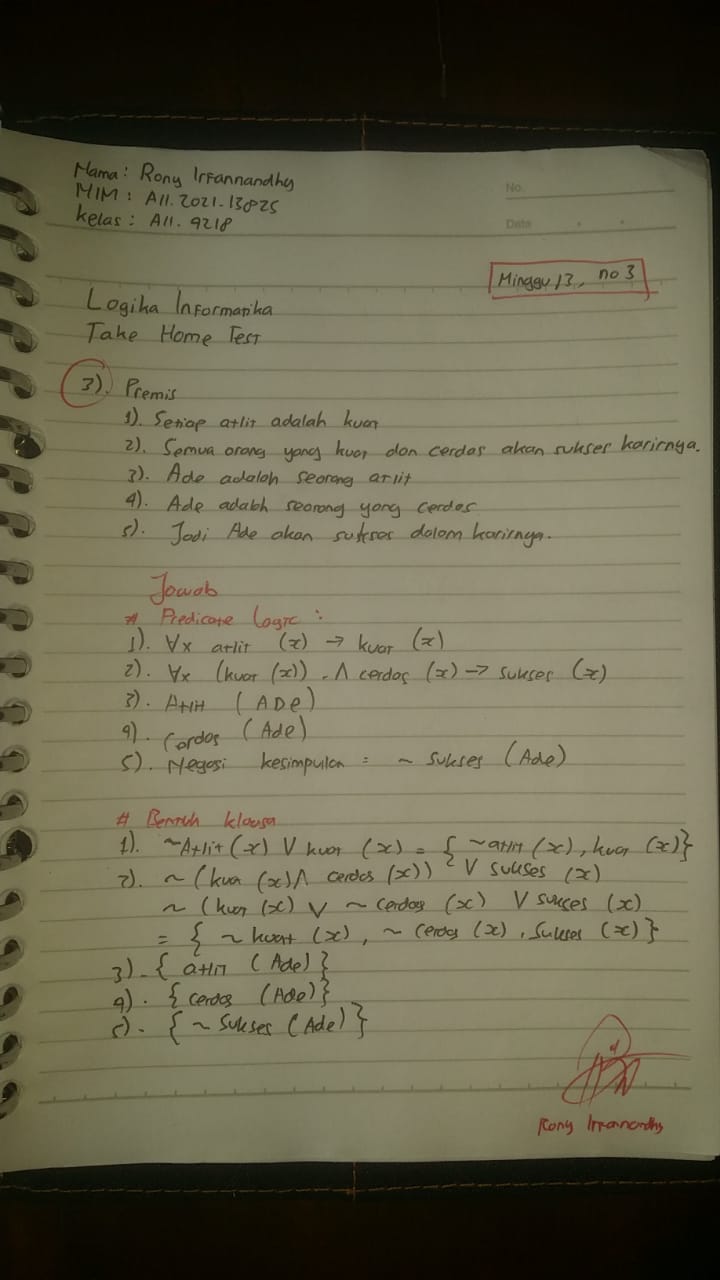 Nama : Rony Irfannandhy
NIM : A11.2021.13825
kelas : A11. 9218
No.
Date
Minggu 13, no 3
Logika Informatika
Take Home Test
3). Premis
1). Setiap atlit adalah kuat
2). Semua orang yang kuat dan cerdas akan sukses karirnya.
3). Ade adalah seorang atlit
4). Ade adalah seorang yang cerdas
5). Jadi Ade akan sukses dalam karirnya.
Jawab
# Predicate Logic :
1). ∀x atlit (x) → kuat (x)
2). ∀x (kuat (x)) . ∧ cerdas (x) → sukses (x)
3). Atlit (ADe)
4). Cerdas (Ade)
5). Negasi kesimpulan = ~ sukses (Ade)
# Bentuk klausa
1). ~Atlit (x) ∨ kuat (x) = { ~atlit (x), kuat (x)}
2). ~ (kuat (x) ∧ cerdas (x)) ∨ sukses (x)
~ (kuat (x) ∨ ~ cerdas (x) ∨ sukses (x)
= { ~ kuat (x), ~ cerdas (x), sukses (x)}
3). { atlit (Ade)}
4). { cerdas (Ade)}
5). { ~ Sukses (Ade)}
Rony Irfannandhy